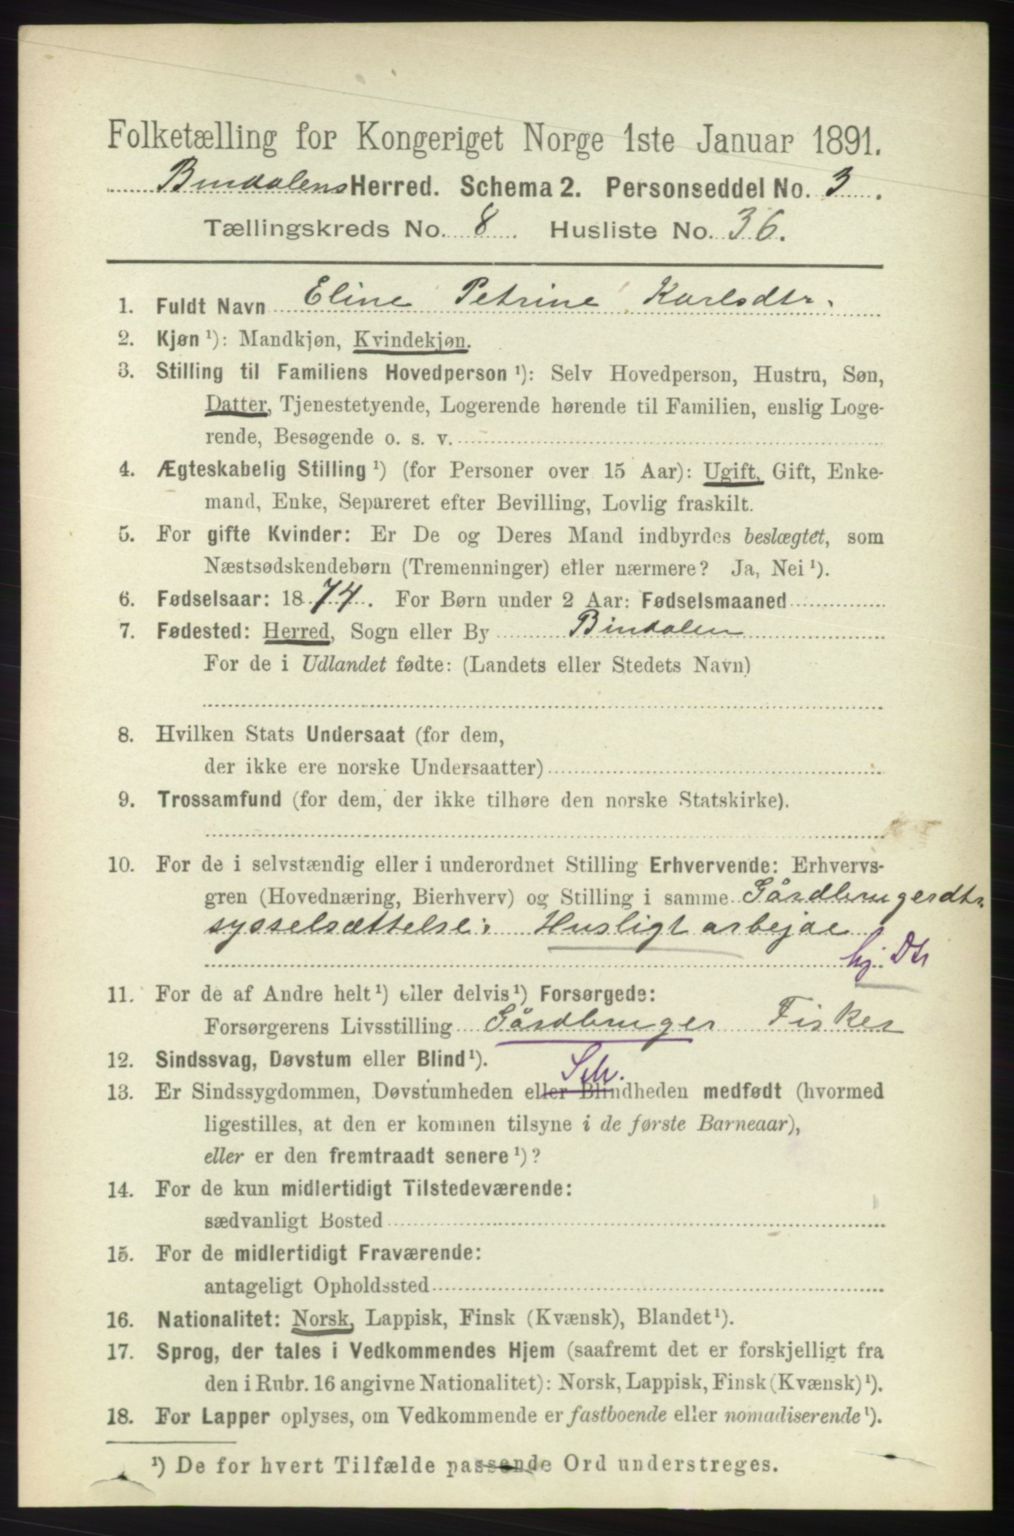 Folketælling for Kongeriget Norge 1ste Januar 1891.
Bindalens Herred. Schema 2. Personseddel No. 3.
Tællingskreds No. 8. Husliste No. 36.
1. Fuldt Navn Eline Petrine Karlsdtr.
2. Kjøn ¹): Mandkjøn, Kvindekjøn.
3. Stilling til Familiens Hovedperson ¹): Selv Hovedperson, Hustru, Søn,
Datter, Tjenestetyende, Logerende hørende til Familien, enslig Loge-
rende, Besøgende o. s. v.
4. Ægteskabelig Stilling ¹) (for Personer over 15 Aar): Ugift, Gift, Enke-
mand, Enke, Separeret efter Bevilling, Lovlig fraskilt.
5. For gifte Kvinder: Er De og Deres Mand indbyrdes beslægtet, som
Næstsødskendebørn (Tremenninger) eller nærmere? Ja, Nei ¹).
6. Fødselsaar: 1874. For Børn under 2 Aar: Fødselsmaaned
7. Fødested: Herred, Sogn eller By Bindalen
For de i Udlandet fødte: (Landets eller Stedets Navn)
8. Hvilken Stats Undersaat (for dem,
der ikke ere norske Undersaatter)
9. Trossamfund (for dem, der ikke tilhøre den norske Statskirke).
10. For de i selvstændig eller i underordnet Stilling Erhvervende: Erhvervs-
gren (Hovednæring, Bierhverv) og Stilling i samme Gårdbrugerdtr.
sysselsættelse: Husligt arbejde
hj. Dtr
11. For de af Andre helt ¹) eller delvis ¹) Forsørgede:
Forsørgerens Livsstilling Gårdbruger Fisker
12. Sindssvag, Døvstum eller Blind ¹).
Selv.
13. Er Sindssygdommen, Døvstumheden eller Blindheden medfødt (hvormed
ligestilles, at den er kommen tilsyne i de første Barneaar),
eller er den fremtraadt senere ¹)?
14. For de kun midlertidigt Tilstedeværende:
sædvanligt Bosted
15. For de midlertidigt Fraværende:
antageligt Opholdssted
16. Nationalitet: Norsk, Lappisk, Finsk (Kvænsk), Blandet ¹).
17. Sprog, der tales i Vedkommendes Hjem (saafremt det er forskjelligt fra
den i Rubr. 16 angivne Nationalitet): Norsk, Lappisk, Finsk (Kvænsk) ¹).
18. For Lapper oplyses, om Vedkommende er fastboende eller nomadiserende ¹).
¹) De for hvert Tilfælde passende Ord understreges.